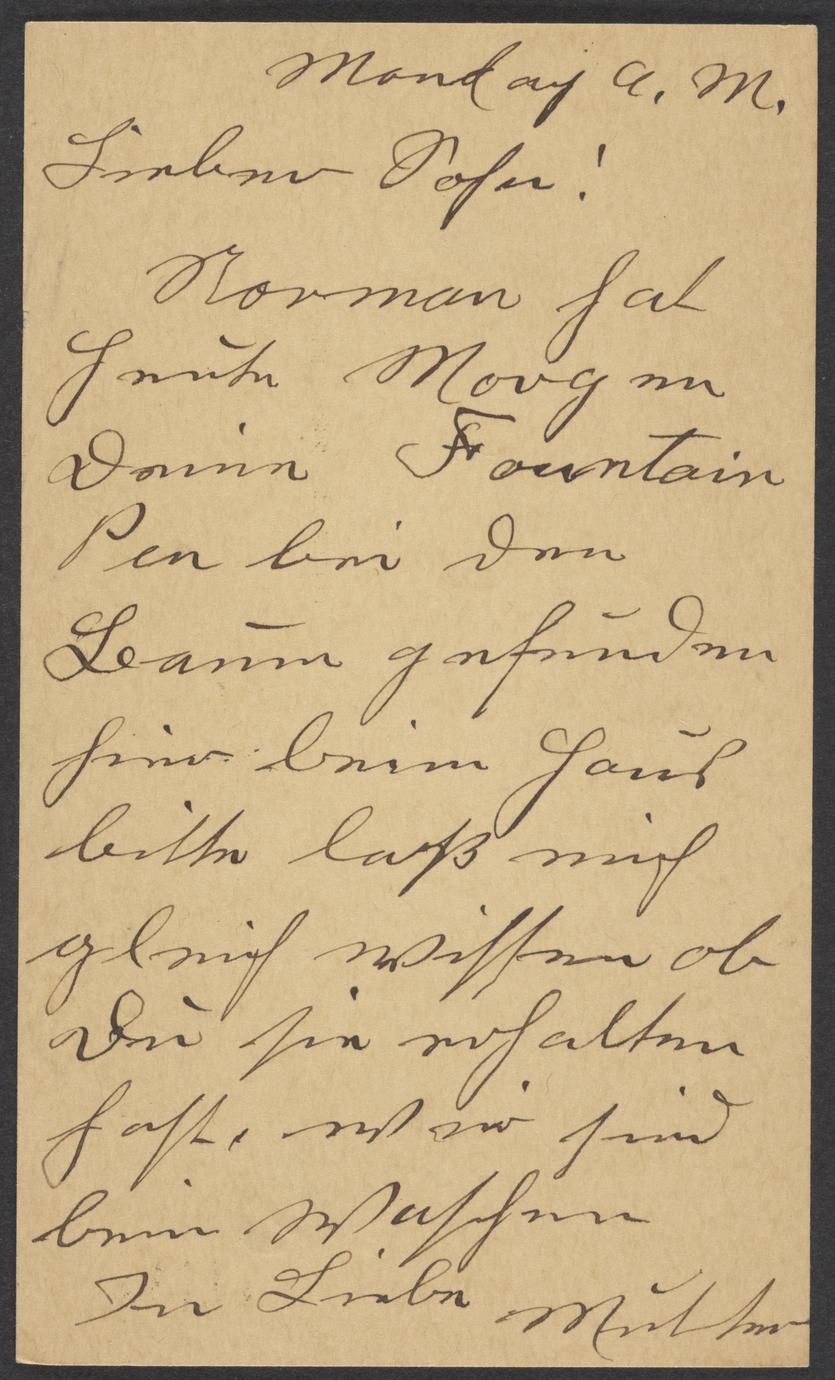 Monday A. M.
Lieber Sohn!
Norman hat
heute Morgen
Deine Fountain
Pen bei den
Baum gefunden
hier beim Haus
bitte laß mich
gleich wissen ob
Du sie erhalten
hast, wir sind
beim Waschen
In Liebe Mutter